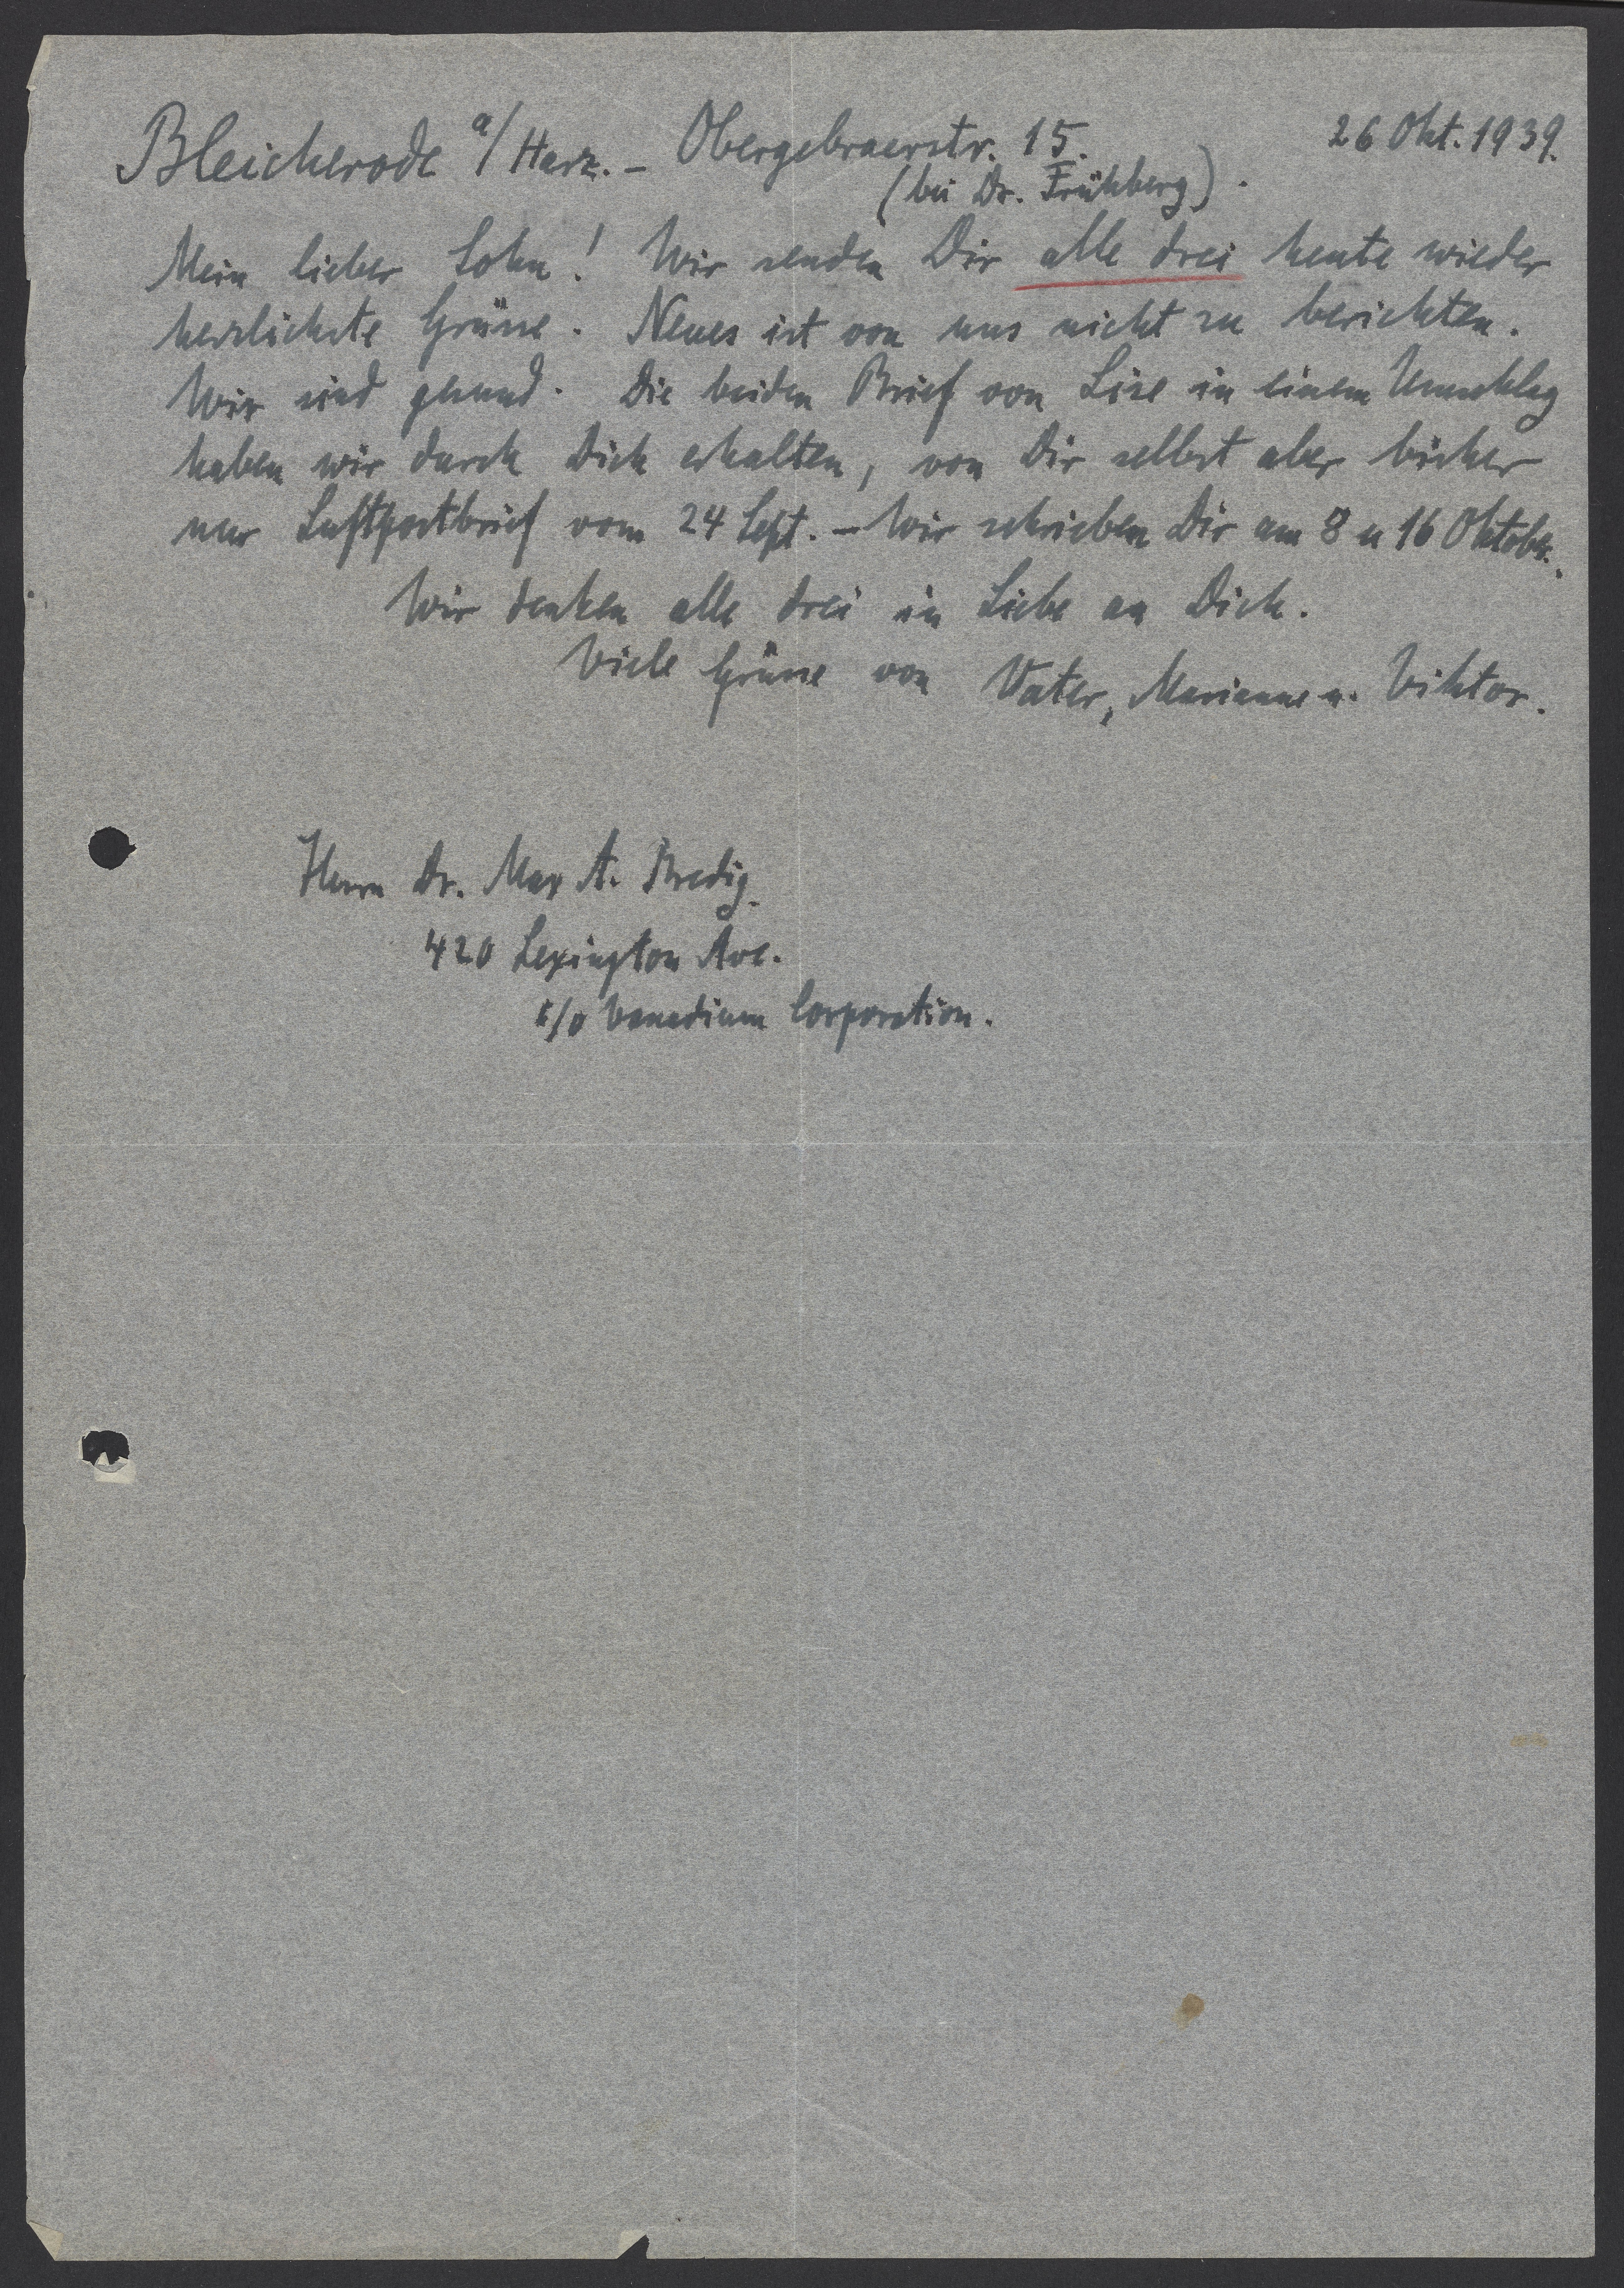 Bleicherode a/Harz. - Obergebraerstr. 15. 26 Okt. 1939.
(bei Dr. Frühberg).
Mein lieber Sohn! Wir senden Dir alle drei heute wieder
herzlichste Grüsse. Neues ist von uns nicht zu berichten.
Wir sind gesund. Die beiden Brief von Lise in einem Umschlag
haben wir durch Dich erhalten, von Dir selbst aber bisher
nur Luftpostbrief vom 24 Sept. - Wir schrieben Dir am 8 u 16 Oktober.
Wir denken alle drei in Liebe an Dich.
Viele Grüsse von Vater, Marianne u. Viktor.
Herrn Dr. Max A. Bredig.
420 Lexington Ave.
c/o Vanadium Corporation.